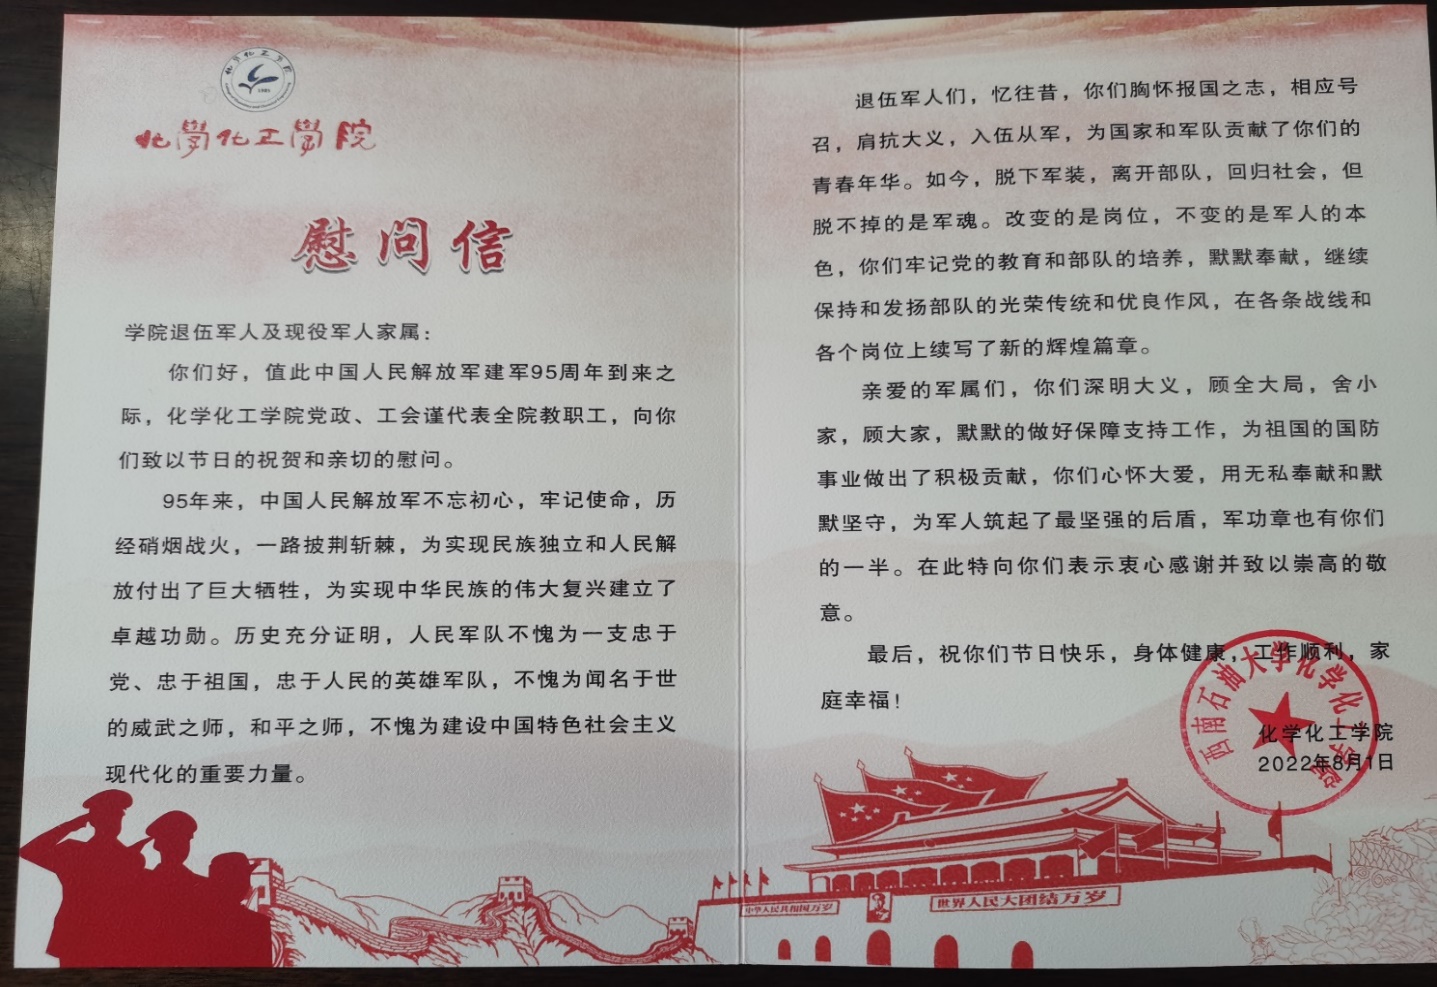 化學化工學院
慰问信
学院退伍军人及现役军人家属：
你们好，值此中国人民解放军建军95周年到来之
际，化学化工学院党政、工会谨代表全院教职工，向你
们致以节日的祝贺和亲切的慰问。
95年来，中国人民解放军不忘初心，牢记使命，历
经硝烟战火，一路披荆斩棘，为实现民族独立和人民解
放付出了巨大牺牲，为实现中华民族的伟大复兴建立了
卓越功勋。历史充分证明，人民军队不愧为一支忠于
党、忠于祖国，忠于人民的英雄军队，不愧为闻名于世
的威武之师，和平之师，不愧为建设中国特色社会主义
现代化的重要力量。
退伍军人们，忆往昔，你们胸怀报国之志，相应号
召，肩抗大义，入伍从军，为国家和军队贡献了你们的
青春年华。如今，脱下军装，离开部队，回归社会，但
脱不掉的是军魂。改变的是岗位，不变的是军人的本
色，你们牢记党的教育和部队的培养，默默奉献，继续
保持和发扬部队的光荣传统和优良作风，在各条战线和
各个岗位上续写了新的辉煌篇章。
亲爱的军属们，你们深明大义，顾全大局，舍小
家，顾大家，默默的做好保障支持工作，为祖国的国防
事业做出了积极贡献，你们心怀大爱，用无私奉献和默
默坚守，为军人筑起了最坚强的后盾，军功章也有你们
的一半。在此特向你们表示衷心感谢并致以崇高的敬
意。
最后，祝你们节日快乐，身体健康，工作顺利，家
庭幸福！
化学化工学院
2022年8月1日
西南石油大学化学化工学院
中华人民共和国万岁
世界人民大团结万岁